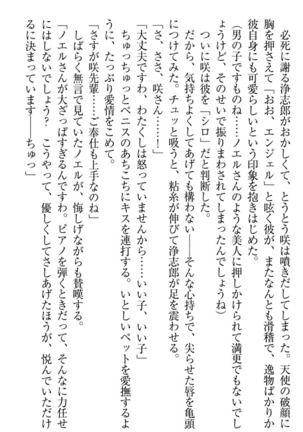 必死に謝る浄志郎がおかしくて、とうとう咲は噴きだしてしまった。天使の破顔に
胸を押さえて「おお、エンジェル」と呟く彼が、またなんとも滑稽で、逸物ばかりか
彼自身にも可愛らしいという印象を抱きはじめた。
(男の子ですものね――ノエルさんのような美人に押しかけられて満更でもないでし
ょうけど、そのせいで振りまわされてしまったんでしょうね)
ついに咲は彼を「シロ」だと判断した。
だから、気持ちよくしてあげても構わない――そんな心持ちで、尖らせた唇を亀頭
につけてみた。チュッと吸うと、粘糸が伸びて浄志郎が足を震わせる。
「さ、ささ、咲さん……!」
「大丈夫ですわ、わたくしは怒っていませんから……いい子、いい子」
ちゅっちゅっとペニスのあちこちにキスを連打する。いとしいペットを愛撫するよ
うに、たっぷり愛情をこめて。
「さすが咲先輩……ご奉仕も上手なのね」
しばらく無言で見ていたノエルが、悔しげながらも賛嘆する。
「ノエルさんが大ざっぱすぎるんですわ。ピアノを弾くときだって、そんなに力任せ
にはしないでしょう？ こうやって、優しくしてさしあげたほうが、悦んでいただけ
るに決まっています――ちゅっ」